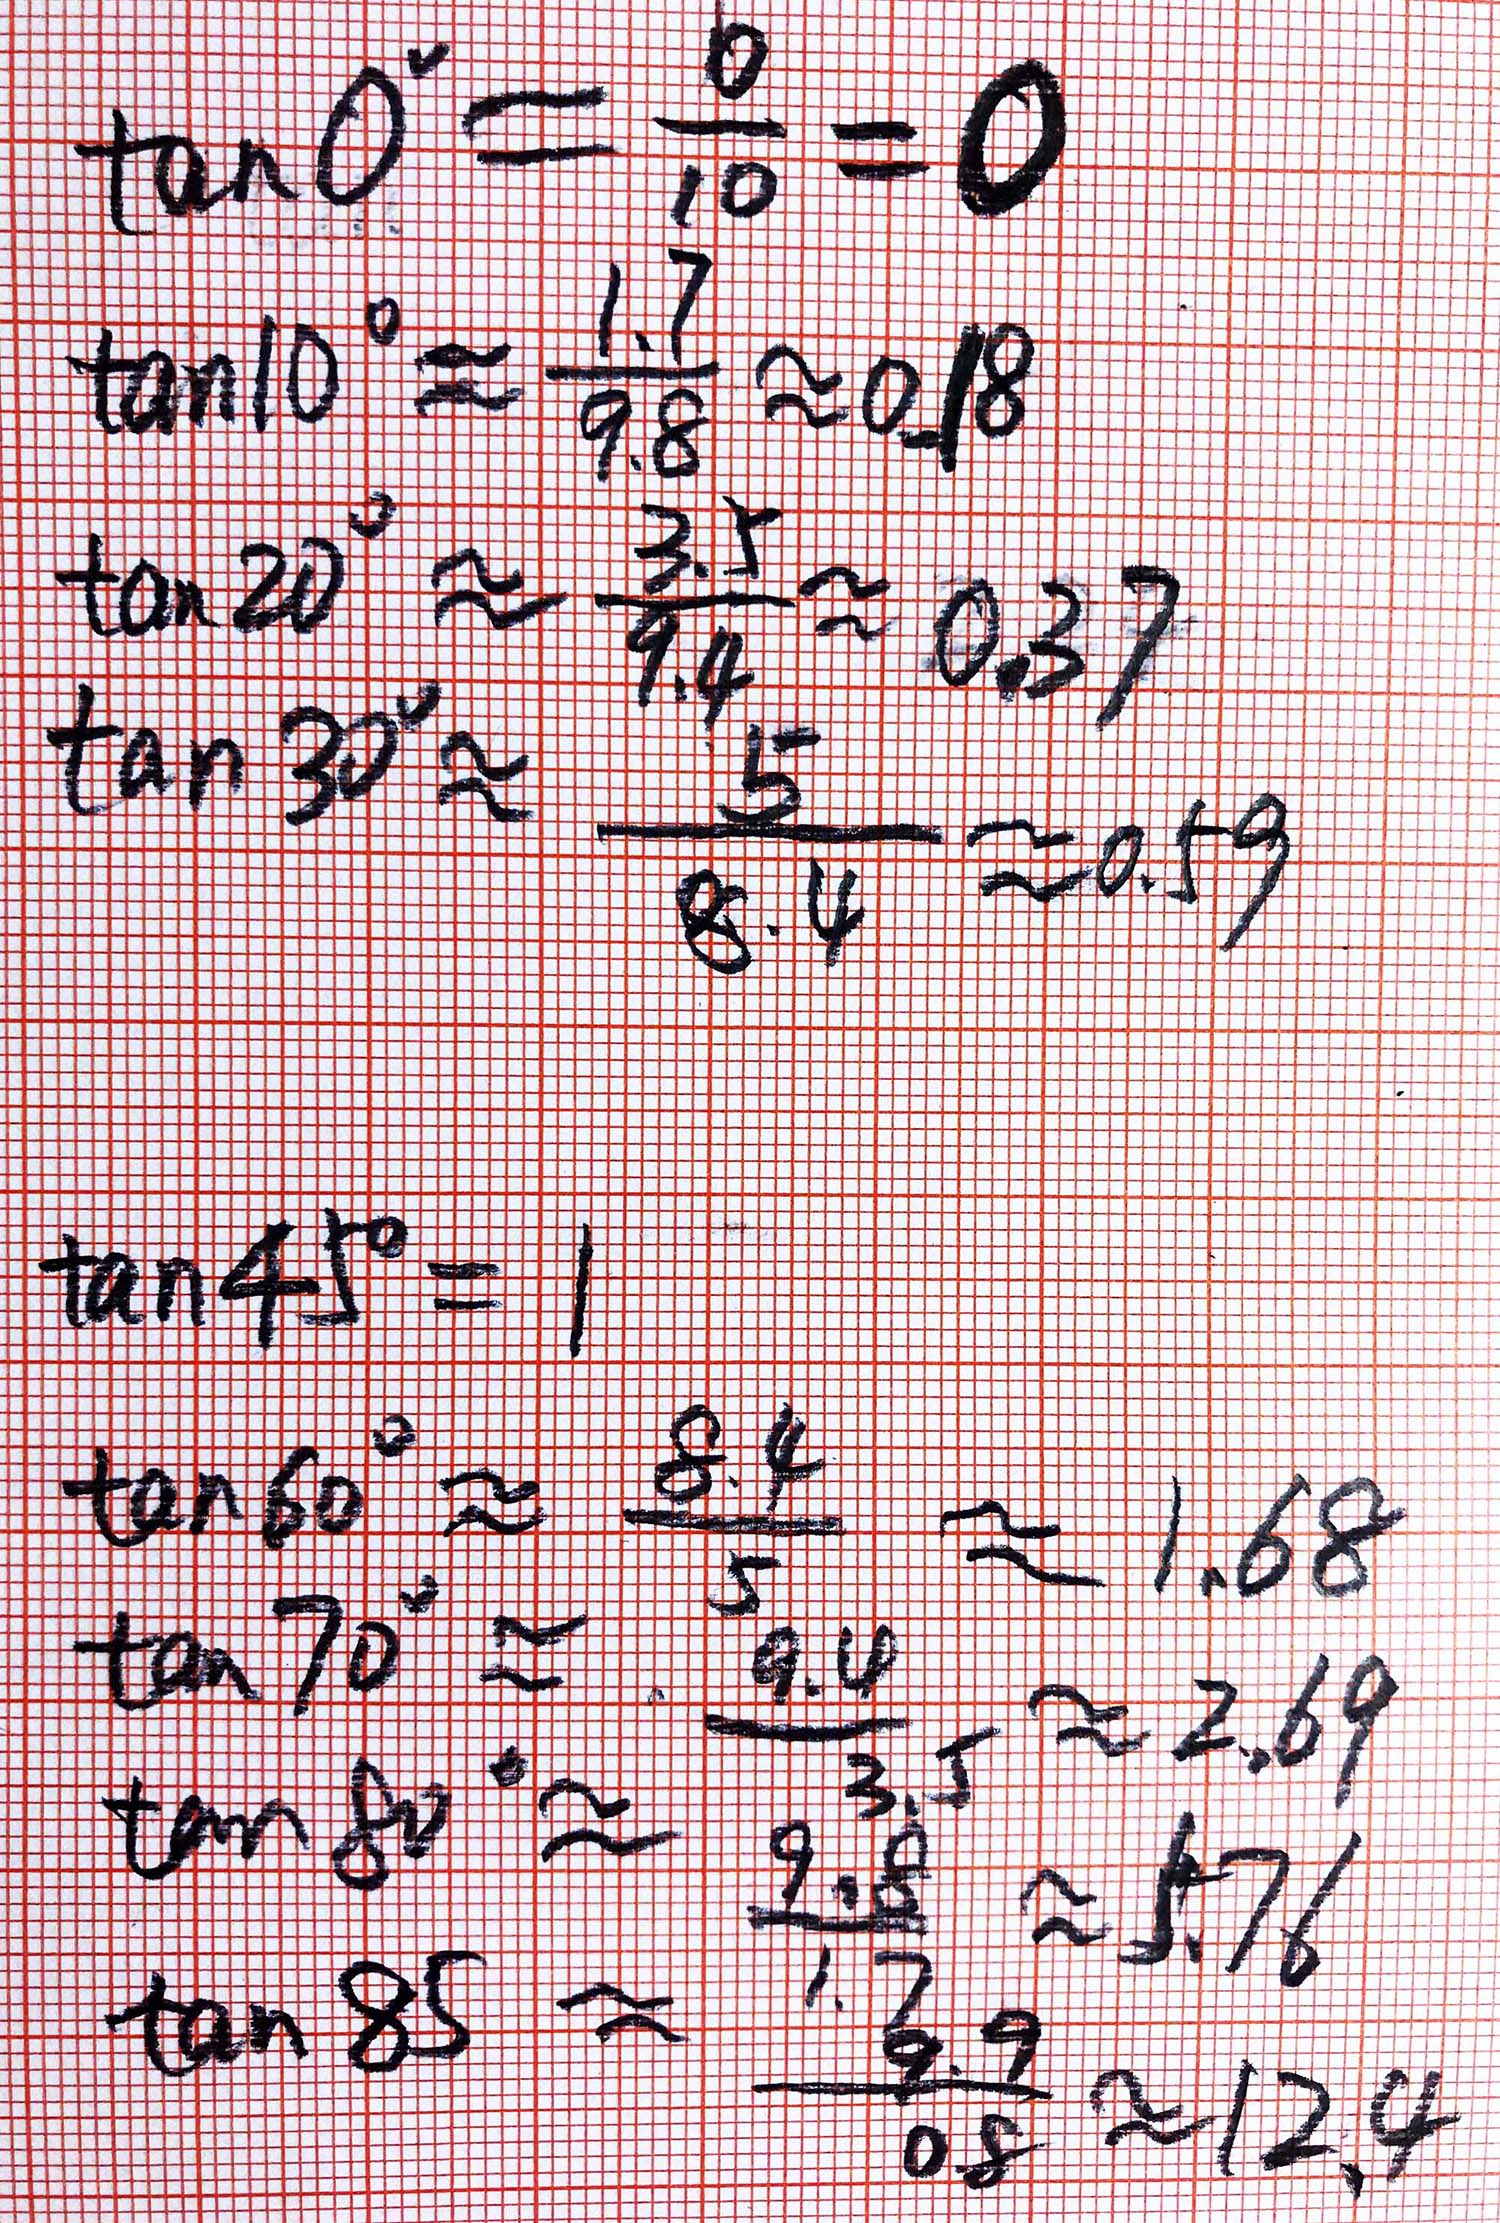 tan0° = 0/10 = 0
tan10° ≈ 1.7/9.8 ≈ 0.18
tan20° ≈ 3.5/9.4 ≈ 0.37
tan30° ≈ 5/8.4 ≈ 0.59
tan45° = 1
tan60° ≈ 8.4/5 ≈ 1.68
tan70° ≈ 9.4/3.5 ≈ 2.69
tan80° ≈ 9.8/1.7 ≈ 5.76
tan85 ≈ 9.9/0.8 ≈ 12.4